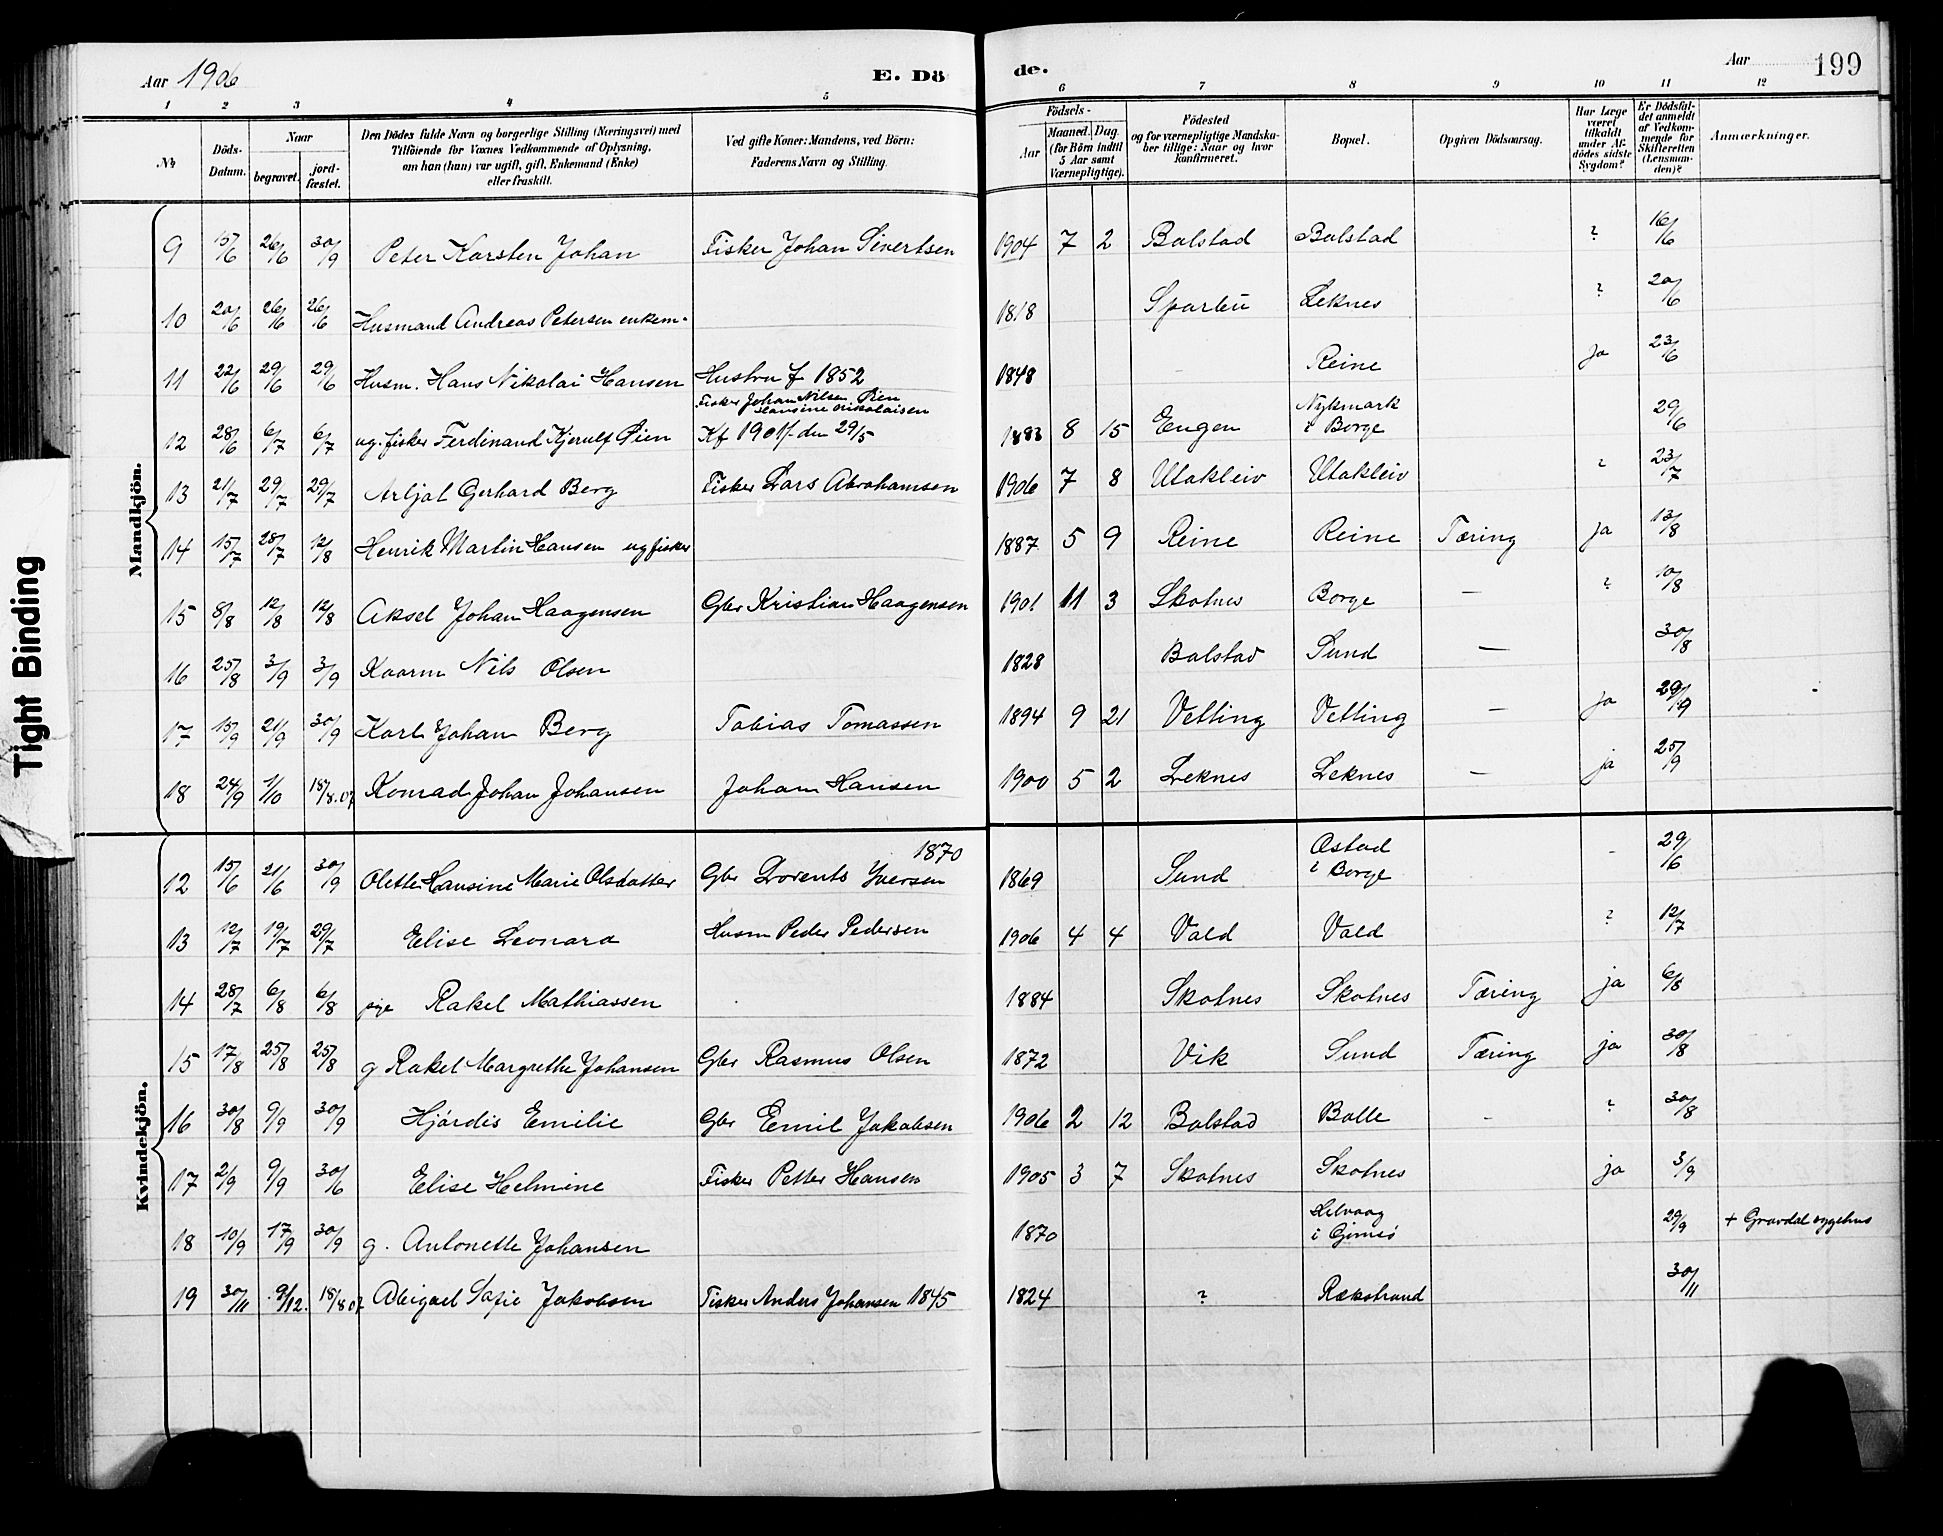 Aar 1906 E. Dö de. Aar 199
1 2 3 4 5 6 7 8 9 10 11 12
№ Döds-Datum. Naar begravet. jord-fæstet. Den Dödes fulde Navn og borgerlige Stilling (Næringsvei) med Tilföiende for Voxnes Vedkommende af Oplysning, om han (hun) var ugift, gift, Enkemand (Enke) eller fraskilt. Ved gifte Koner: Mandens, ved Börn: Faderens Navn og Stilling. Födsels- Aar Maaned. Dag. (for Börn indtil 5 Aar samt Værnepligtige). Födested og for værnepligtige Mandskaber tillige: Naar og hvor konfirmeret. Bopæl. Opgiven Dödsaarsag. Har Læge været tilkaldt under Afdödes sidste Sygdom? Er Dödsfaldet anmeldt af Vedkommende for Skifteretten (Lensmanden)? Anmærkninger.
Mandkjön.
9 15/6 26/6 30/9 Peter Karsten Johan Fisker Johan Sivertsen 1904 7 2 Balstad Balstad ? 16/6
10 20/6 26/6 26/6 Husmand Andreas Petersen enkem. 1818 Sparbu Leknes ? 20/6
11 22/6 29/6 29/6 Husm. Hans Nikolai Hansen Hustru f 1852 1848 - Reine ja 23/6
Fisker Johan Nilsen Øien
Hansine Nikolaisen
12 28/6 6/7 6/7 ug. fisker Ferdinand Kjerulf Øien Kf 1901 den 29/5 1883 8 15 Engen Nykmark i Borge 29/6
13 21/7 29/7 29/7 Arljot Gerhard Berg Fisker Lars Abrahamsen 1906 7 8 Utakleiv Utakleiv ? 23/7
14 15/7 28/7 12/8 Henrik Martin Hansen ug fisker 1887 5 9 Reine Reine Tæring ja 13/8
15 8/8 12/8 12/8 Aksel Johan Haagensen Gbr Kristian Haagensen 1901 11 3 Skotnes Borge — ? 10/8
16 25/8 3/9 3/9 Kaarm Nils Olsen 1828 Balstad Sund — 30/8
17 15/9 21/9 30/9 Karl Johan Berg Tobias Tomassen 1894 9 21 Vetting Vetting — ja 29/9
18 24/9 1/10 18/8.07 Konrad Johan Johansen Johan Hansen 1900 5 2 Leknes Leknes — ja 25/9
Kvindekjön.
1870
12 15/6 21/6 30/9 Olette Hansine Marie Olsdatter Gbr Lorents Iversen 1869 Sund Østad i Borge - 29/6
13 12/7 19/7 29/7 Elise Leonara Husm Peder Pedersen 1906 4 4 Vald Vald ? 12/7
14 28/7 6/8 6/8 pige Rakel Mathiassen 1884 Skotnes Skotnes Tæring ja 6/8
15 17/8 25/8 25/8 g Rakel Margrethe Johansen Gbr Rasmus Olsen 1872 Vik Sund Tæring ja 30/8
16 30/8 9/9 30/9 Hjördis Emilie Gbr Emil Jakobsen 1906 2 12 Balstad Balle - ? 30/8
17 2/9 9/9 30/6 Elise Helmine Fisker Petter Hansen 1905 3 7 Skotnes Skotnes ja 3/9
18 10/9 17/9 30/9 g. Antonette Johansen 1870 i Gimsö 29/9 + Gravdal sygehus
19 30/11 9/12. 18/8 07 Abigael Sofie Jakobsen Fisker Anders Johansen 1845 1824 ? Rækstrand 30/11
Tight Binding